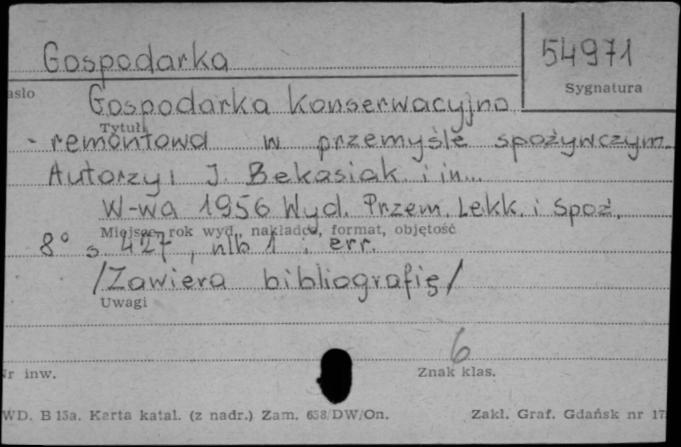 Gospodarka 54971
asło Sygnatura
Gospodarka konserwacyjno
Tytuł
- remontowa w przemyśle spożywczym.
Autorzy: J. Bekasiak i in...
W-wa 1956 Wyd. Przem. Lekk. i Spoż.
Miejsce, rok wyd., nakładca, format, objętość
8° s. 427, nlb 1 i err.
/Zawiera bibliografię/
Uwagi
6
r inw. Znak klas.
WD. B 15a. Karta katal. (z nadr.) Zam. 658/DW/On. Zakł. Graf. Gdańsk nr 17